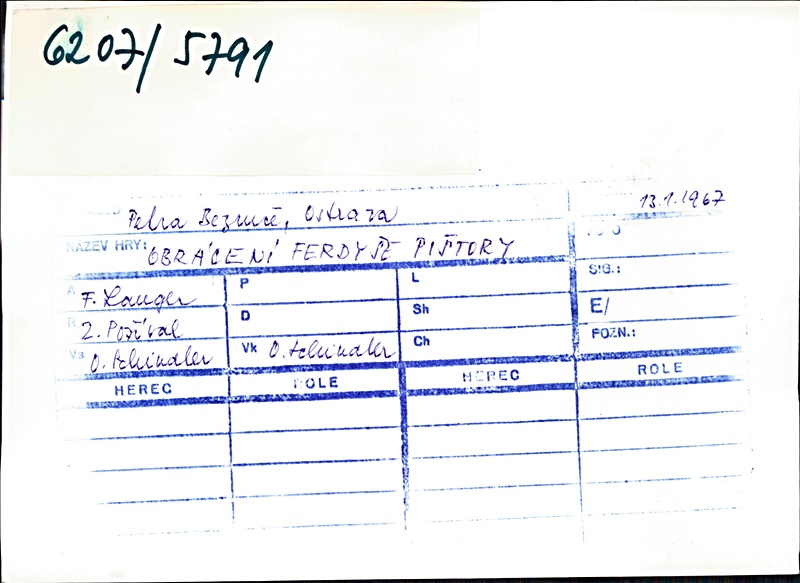 6207/5791
Petra Bezruče, Ostrava 13.1.1967
NÁZEV HRY: OBRÁCENÍ FERDYŠE PIŠTORY
A F. Langer P L SIG.:
R Z. Pošíval D Sh E/
Vs O. Schindler Vk O. Schindler Ch POZN.:
HEREC ROLE HEREC ROLE